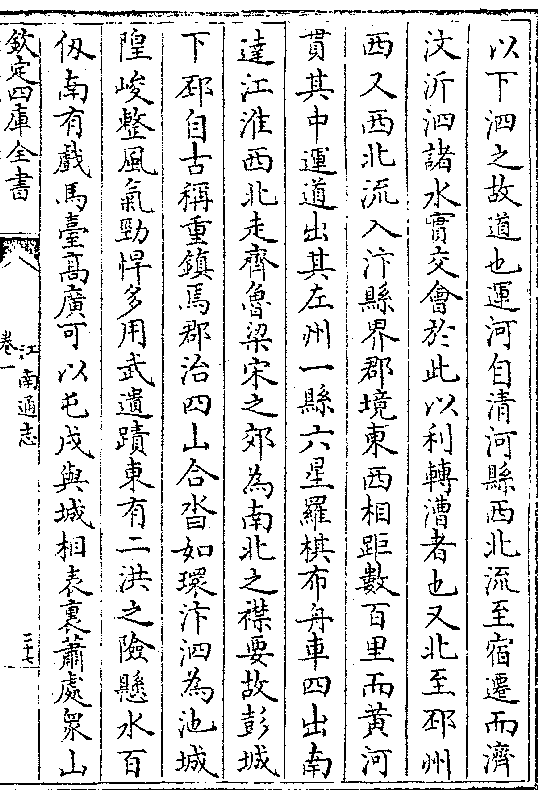 以下泗之故道也運河自清河縣西北流至宿遷而濟
汶沂泗諸水實交會於此以利轉漕者也又北至邳州
西又西北流入汴縣界郡境東西相距數百里而黄河
貫其中運道出其左州一縣六星羅棋布舟車四出南
達江淮西北走齊魯梁宋之郊為南北之襟要故彭城
下邳自古稱重鎮焉郡治四山合沓如環汴泗為池城
隍峻整風氣勁悍多用武遺蹟東有二洪之險懸水百
仭南有戲馬臺髙廣可以屯戍與城相表裏蕭處衆山
欽定四庫全書
江南通志
卷一
三十七